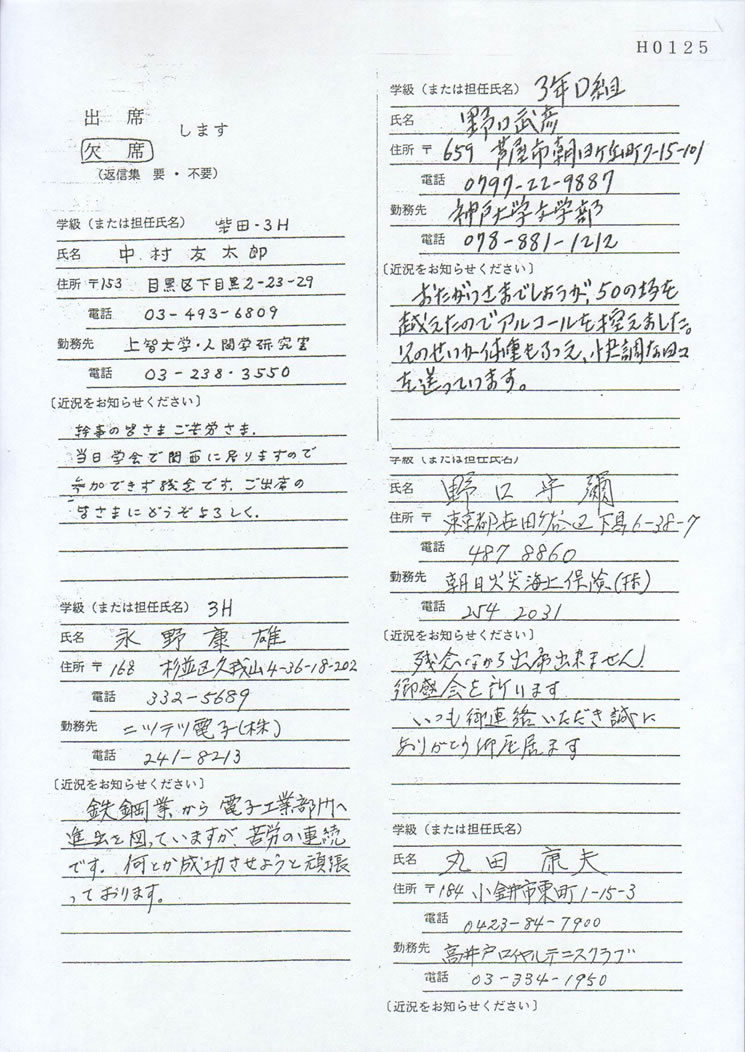 H0125
出席
欠席
します
(返信集 要・不要)
学級(または担任氏名) 柴田・3H
氏名 中村友太郎
住所 〒153 目黒区下目黒2-23-29
電話 03-493-6809
勤務先 上智大学・人間学研究室
電話 03-238-3550
〔近況をお知らせください〕
幹事の皆さまご苦労さま.
当日学会で関西に居りますので
参加できず残念です.ご出席の
皆さまにどうぞよろしく.
学級(または担任氏名) 3H
氏名 永野康雄
住所 〒168 杉並区久我山4-36-18-202
電話 332-5689
勤務先 ニッテツ電子(株)
電話 241-8213
〔近況をお知らせください〕
鉄鋼業から電子工業部門へ
進出を図っていますが、苦労の連続
です。何とか成功させようと頑張
っております。
学級(または担任氏名) 3年D組
氏名 野口武彦
住所 〒659 芦屋市朝日ヶ丘町7-15-101
電話 0797-22-9887
勤務先 神戸大学文学部
電話 078-881-1212
〔近況をお知らせください〕
おたがいさまでしょうが、50の坂を
越えたのでアルコールを控えました。
そのせいか体重もふえ、快調な日々
を送っています。
学級(または担任氏名)
氏名 野口守彌
住所 〒 東京都世田ヶ谷区下馬6-38-7
電話 487 8860
勤務先 朝日火災海上保険(株)
電話 254 2031
〔近況をお知らせください〕
残念ながら出席出来ません!
御盛会を祈ります
いつも御連絡いただき誠に
ありがとう御座居ます
学級(または担任氏名)
氏名 丸田 夫
住所 〒184 小金井市東町1-15-3
電話 0423-84-7900
勤務先 高井戸ロイヤルテニスクラブ
電話 03-334-1950
〔近況をお知らせください〕